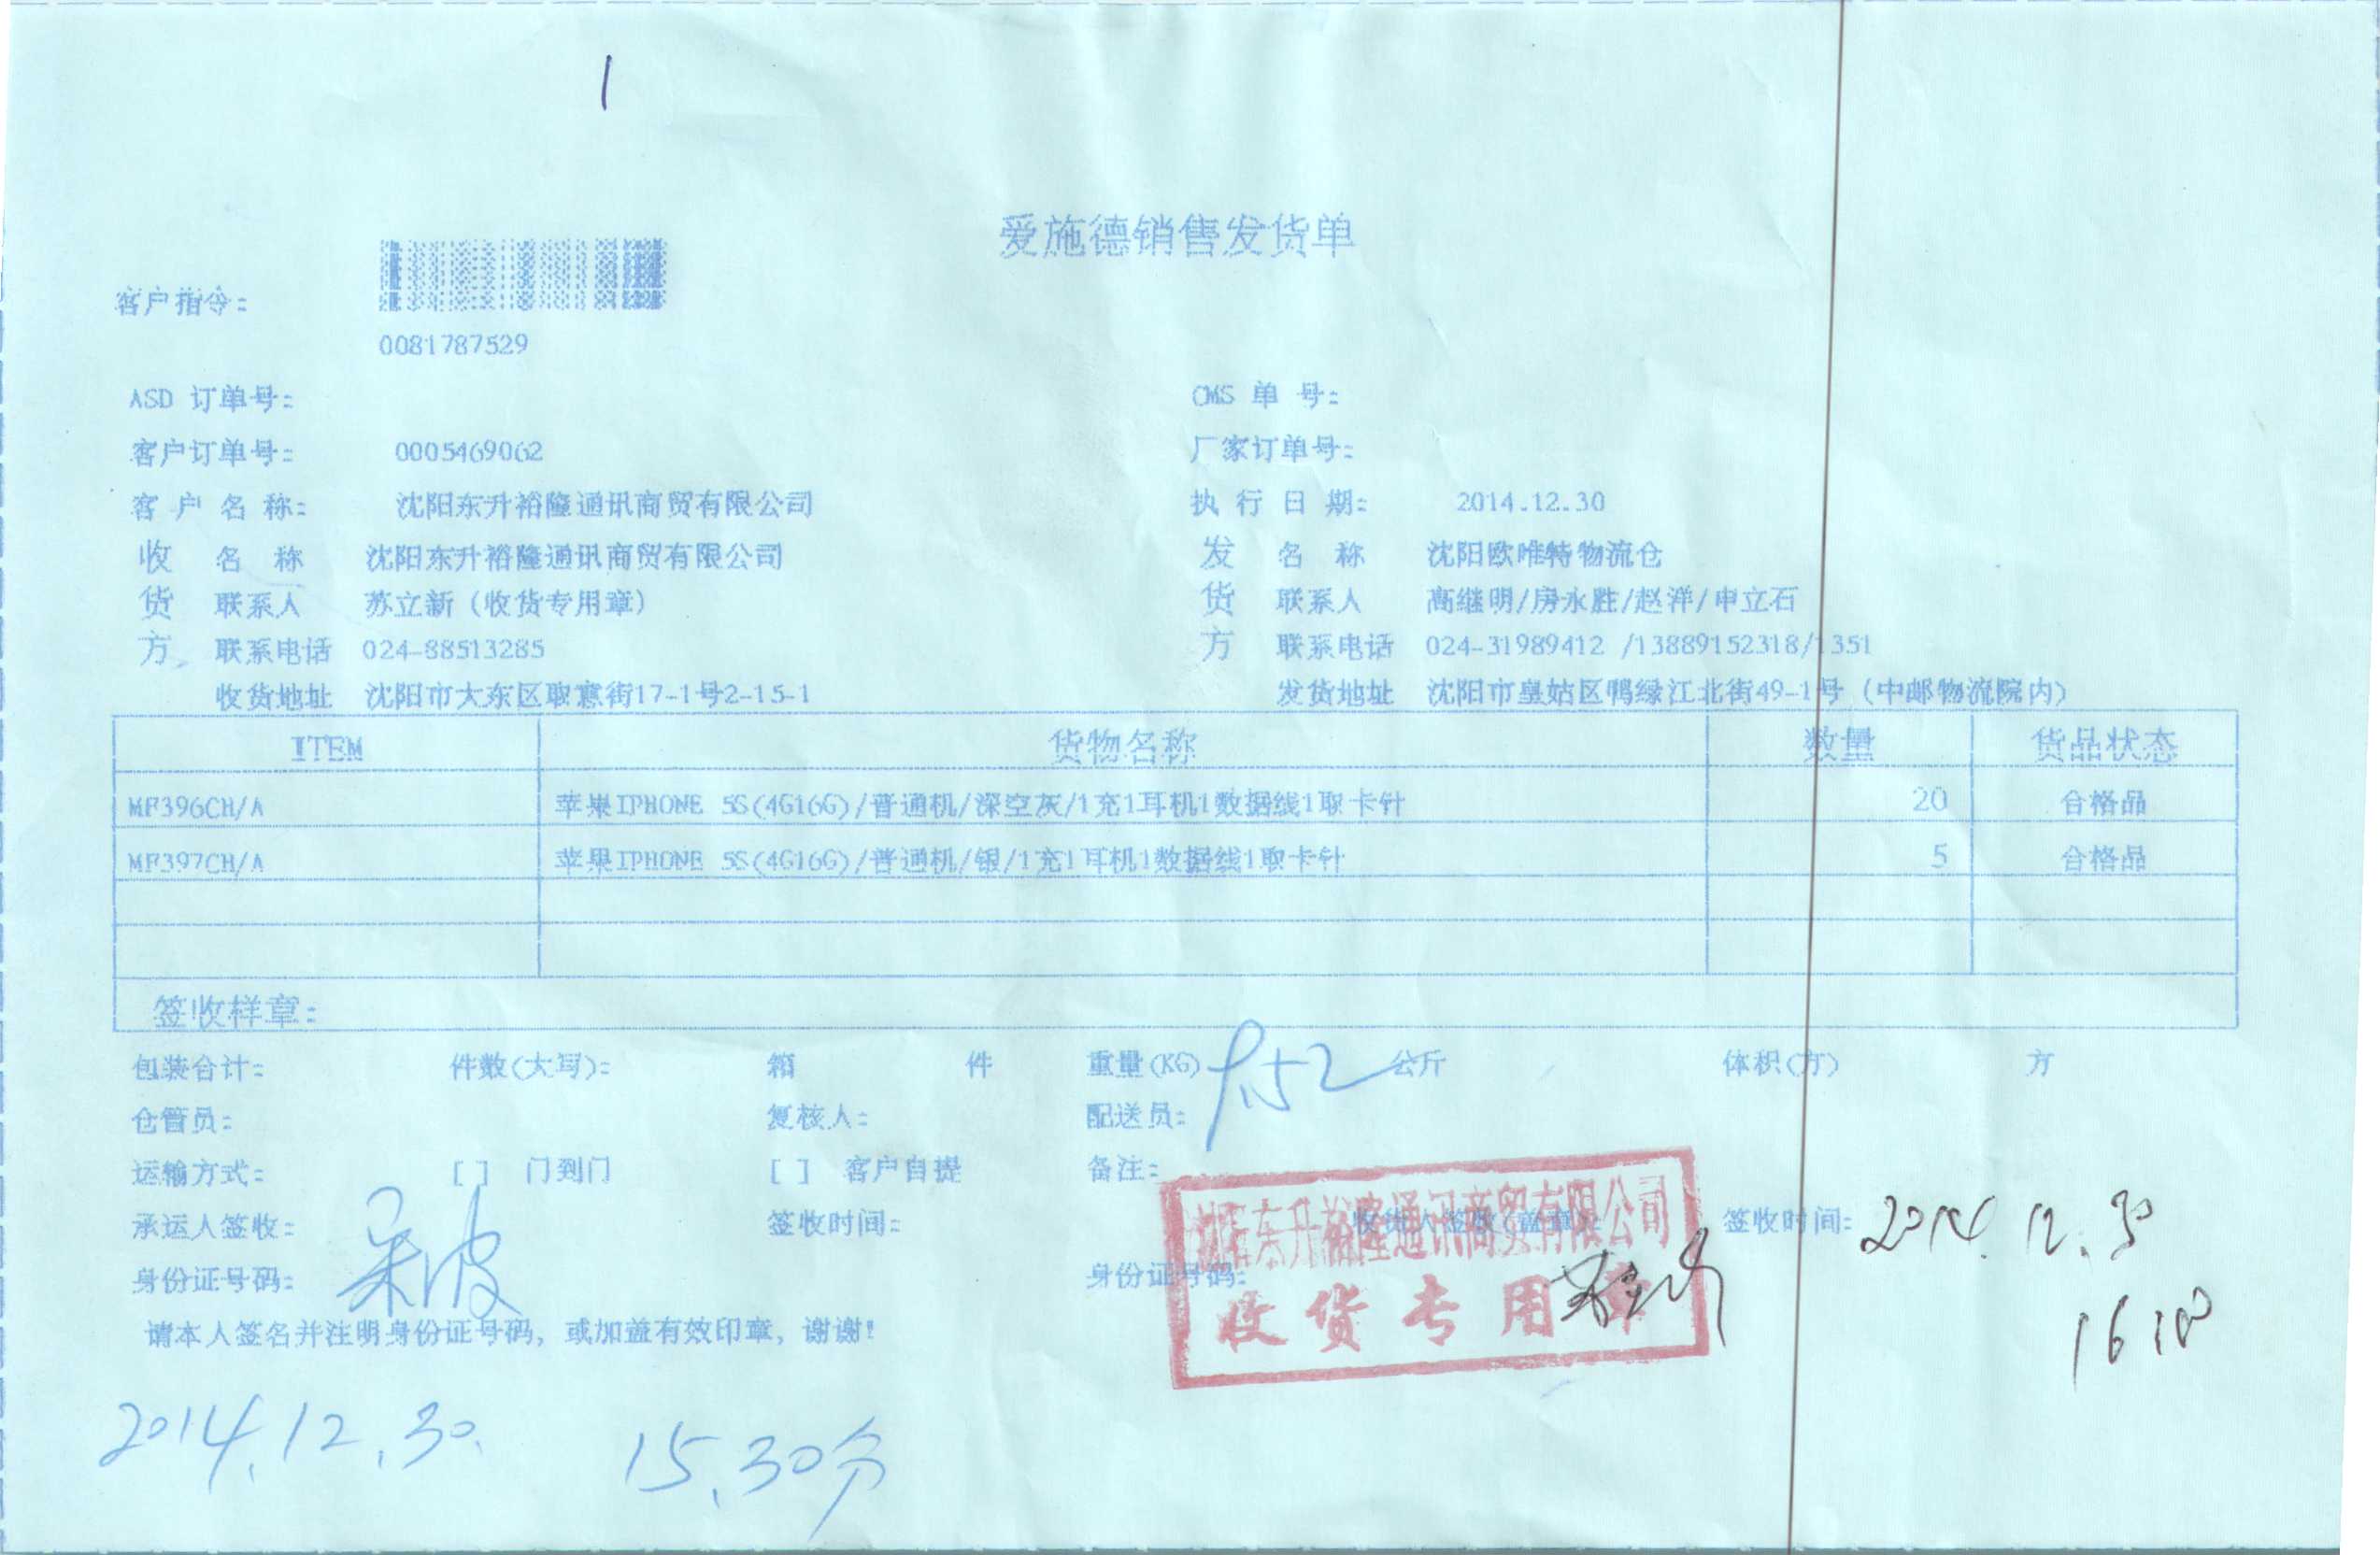 1
爱施德销售发货单
客户指令：
0081787529
ASD 订单号： CMS 单 号：
客户订单号： 0005469062 厂家订单号：
客 户 名 称： 沈阳东升裕隆通讯商贸有限公司 执 行 日 期： 2014.12.30
收 名 称 沈阳东升裕隆通讯商贸有限公司 发 名 称 沈阳欧唯特物流仓
货 联系人 苏立新（收货专用章） 货 联系人 高继明/房永胜/赵洋/申立石
方 联系电话 024-88513285 方 联系电话 024-31989412 /13889152318/1351
收货地址 沈阳市大东区取意街17-1号2-15-1 发货地址 沈阳市皇姑区鸭绿江北街49-1号（中邮物流院内）
ITEM 货物名称 数量 货品状态
MF396CH/A 苹果IPHONE 5S(4G16G)/普通机/深空灰/1充1耳机1数据线1取卡针 20 合格品
MF397CH/A 苹果IPHONE 5S(4G16G)/普通机/银/1充1耳机1数据线1取卡针 5 合格品
签收样章：
包装合计： 件数(大写)： 箱 件 重量(KG) 公斤 体积(方) 方
仓管员： 复核人： 配送员：
运输方式： [ ] 门到门 [ ] 客户自提 备注：
承运人签收： 签收时间： 收货人签收(盖章)： 签收时间： 2014.12.30
沈阳东升裕隆通讯商贸有限公司
身份证号码： 身份证号码：
收货专用章
请本人签名并注明身份证号码，或加盖有效印章，谢谢！
2014.12.30. 15.30分